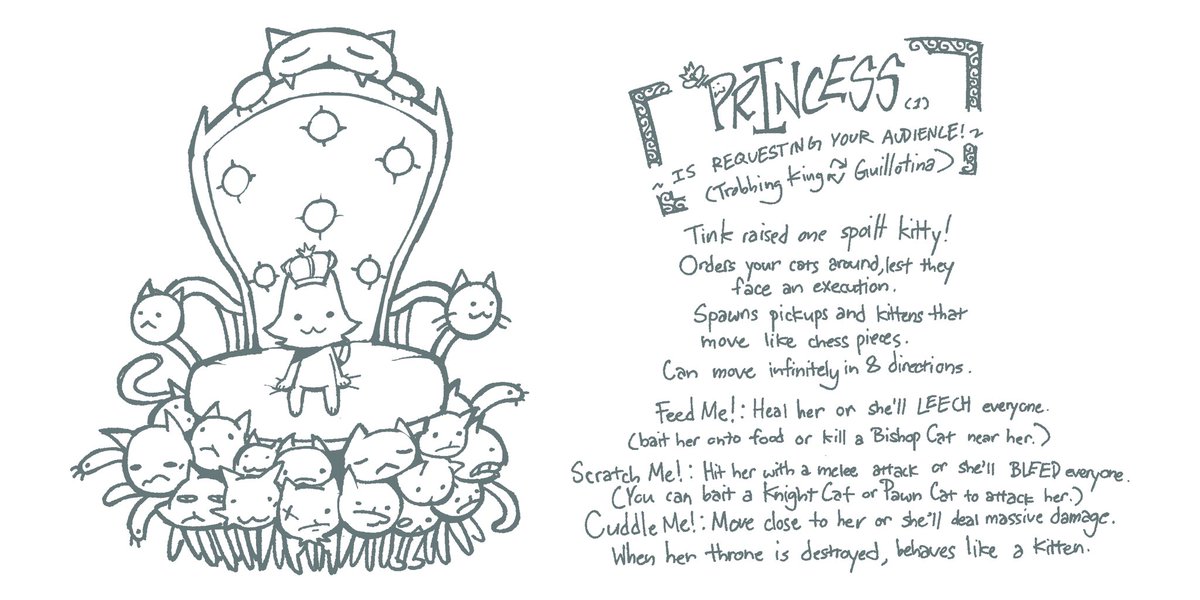 PRINCESS (1)
~ IS REQUESTING YOUR AUDIENCE! ~
(Trobbing King ⇄ Guillotina)
Tink raised one spoilt kitty!
Orders your cats around, lest they
face an execution.
Spawns pickups and kittens that
move like chess pieces.
Can move infinitely in 8 directions.
Feed Me!: Heal her or she'll LEECH everyone.
(bait her onto food or kill a Bishop Cat near her.)
Scratch Me!: Hit her with a melee attack or she'll BLEED everyone.
(You can bait a Knight Cat or Pawn Cat to attack her.)
Cuddle Me!: Move close to her or she'll deal massive damage.
When her throne is destroyed, behaves like a kitten.